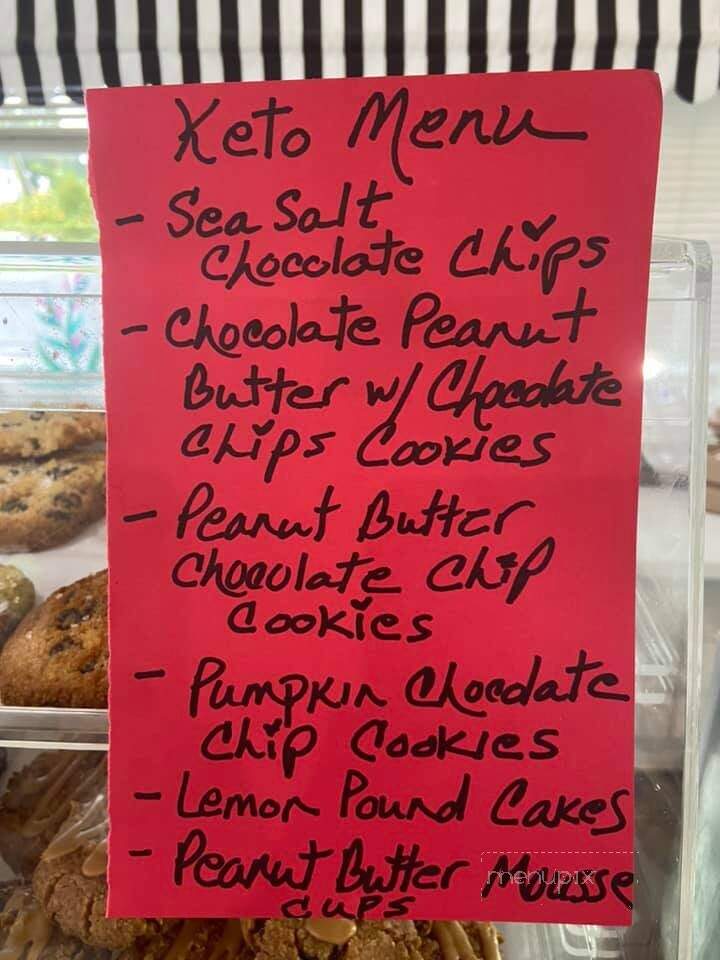 Keto Menu
- Sea Salt
Chocolate Chips
- Chocolate Peanut
Butter w/ Chocolate
Chips Cookies
- Peanut Butter
Chocolate Chip
Cookies
- Pumpkin Chocolate
Chip Cookies
- Lemon Pound Cakes
- Peanut Butter Mousse
cups
menupix